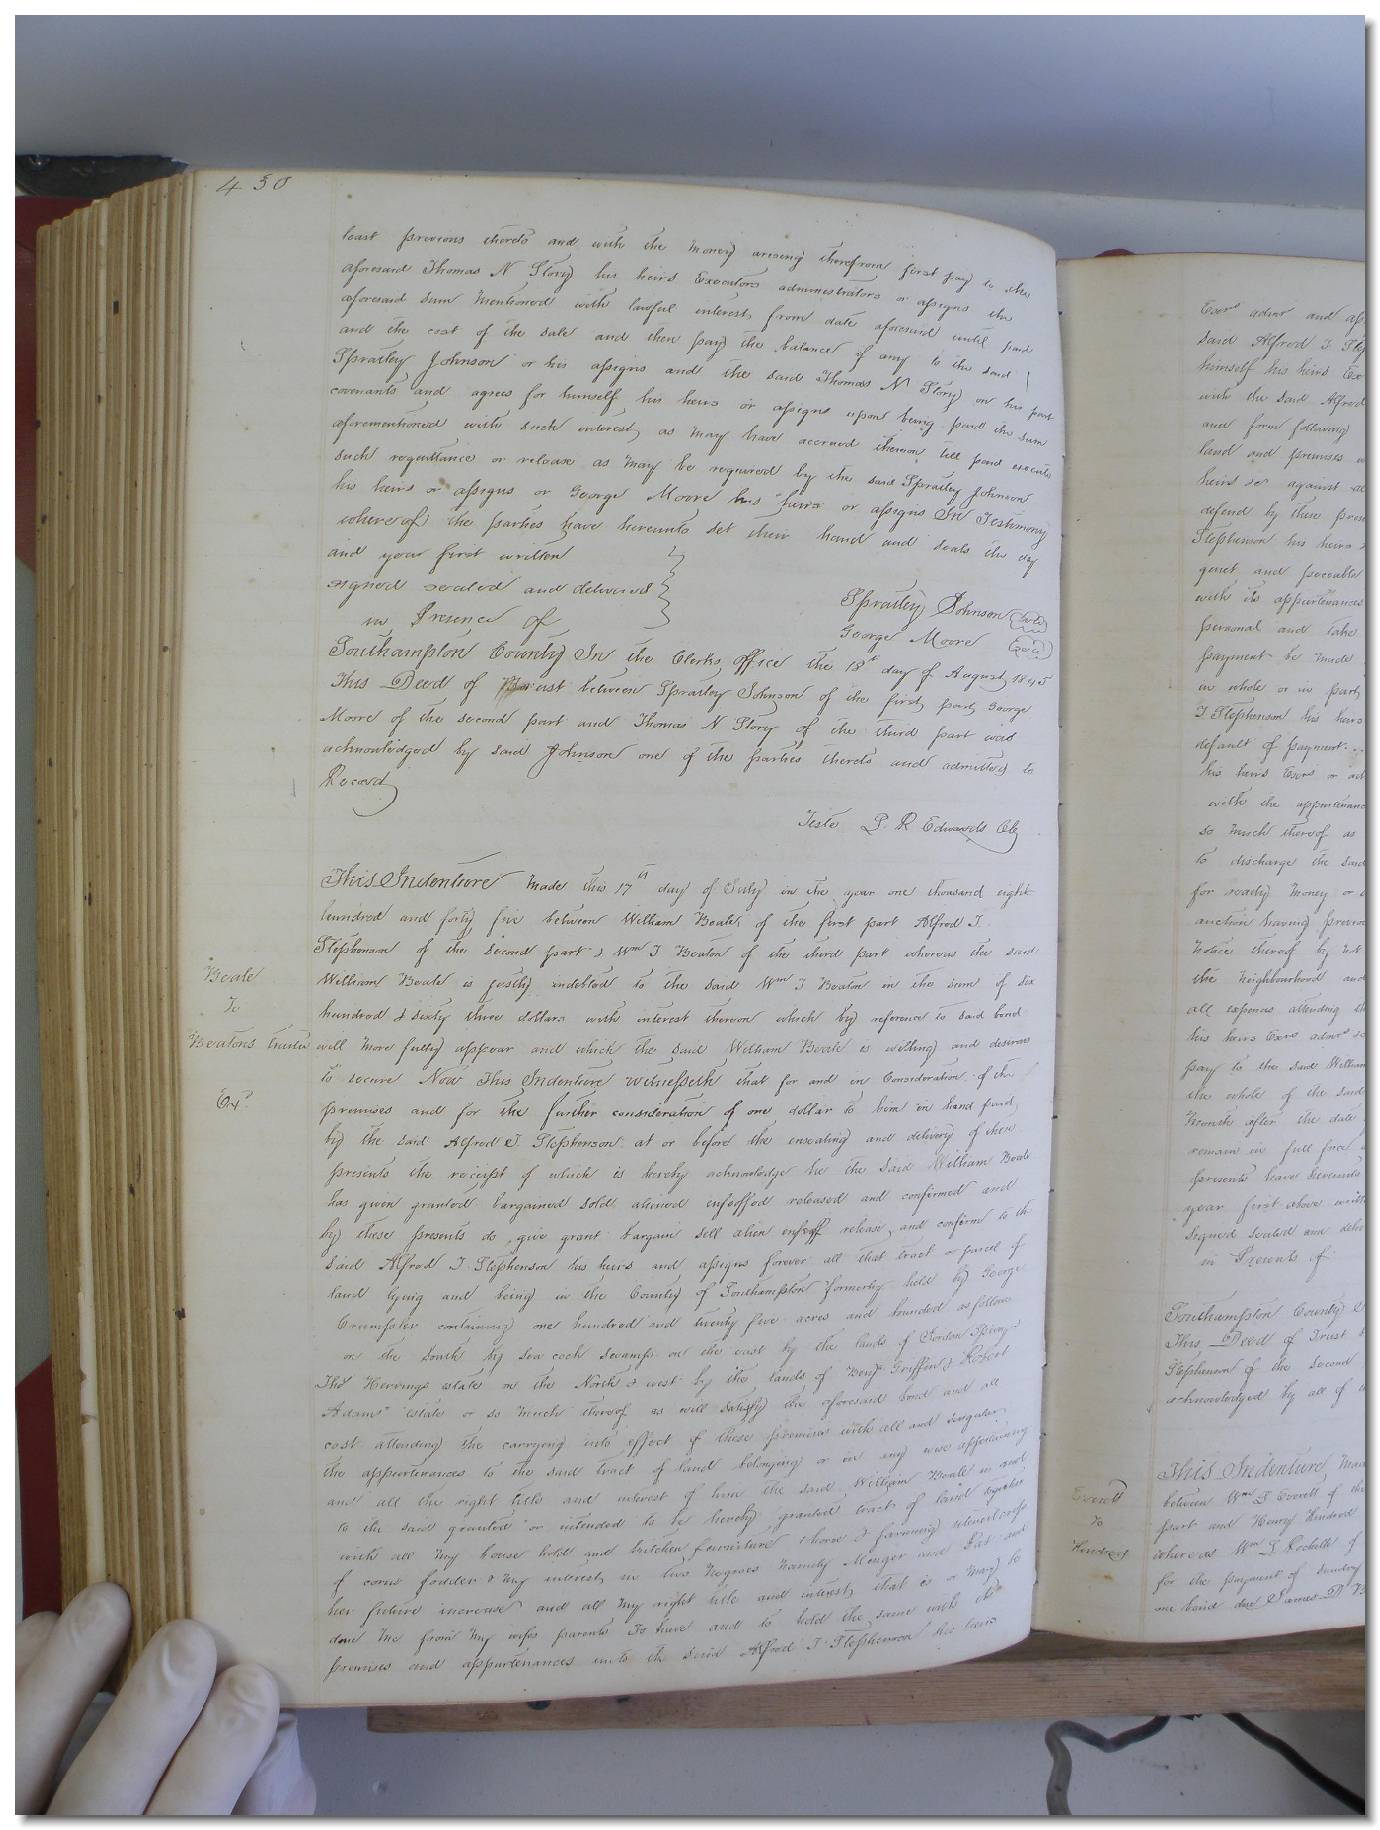 430
least previous thereto and with the money arising therefrom first pay to the
aforesaid Thomas N Story his heirs Executors administrators or assigns the
aforesaid sum mentioned with lawful interest from date aforesaid until paid
and the cost of the sale and then pay the balance if any to the said
Spratley Johnson or his assigns and the said Thomas N Story on his part
covenants and agrees for himself his heirs or assigns upon being paid the sum
aforementioned with such interest as may have accrued thereon till paid execute
such requittance or release as may be required by the said Spratley Johnson
his heirs or assigns or George Moore his heirs or assigns In Testimony
whereof the parties have hereunto set their hand and seals the day
and year first written
signed sealed and delivered
in Presence of
Spratley Johnson Seal
George Moore Seal
Southampton County In the Clerks office the 18th day of August 1845
This Deed of Trust between Spratley Johnson of the first part George
Moore of the second part and Thomas N Story of the third part was
acknowledged by said Johnson one of the parties thereto and admitted to
Record
Teste L R Edwards Clk
Beale
To
Beatons trustee
Exd
This Indenture made this 17th day of July in the year one thousand eight
hundred and forty five between William Beale, of the first part Alfred J.
Stephenson of the second part & Wm J Beaton of the third part whereas the said
William Beale is justly indebted to the said Wm J Beaton in the sum of six
hundred & sixty three dollars with interest thereon which by reference to said bond
will more fully appear and which the said William Beale is willing and desirous
to secure Now This Indenture witnesseth that for and in consideration of the
premises and for the further consideration of one dollar to him in hand paid
by the said Alfred J. Stephenson at or before the ensealing and delivery of these
presents the receipt of which is hereby acknowledge he the said William Beale
has given granted bargained sold aliened enfeoffed released and confirmed and
by these presents do give grant bargain sell alien enfeoff release and confirm to the
said Alfred J Stephenson his heirs and assigns forever all that tract or parcel of
land lying and being in the County of Southampton formerly held by George
Crumpler containing one hundred and twenty five acres and bounded as follows
on the South by Sea cock Swamp on the east by the lands of Gordon
Thos Herrings estate on the North & west by the lands of Benj Griffin & Robert
Adams estate or so much thereof as will satisfy the aforesaid bond and all
cost attending the carrying into effect of these premises with all and singular
the appurtenances to the said tract of land belonging or in any wise appertaining
and all the right title and interest of him the said William Beale in and
to the said granted or intended to be hereby granted tract of land together
with all my house hold and kitchen furniture 1 horse & farming utensils crop
of corn fodder & my interest in two Negroes Namely and Pat and
her future increase and all my right title and interest that is or may be
due me from my wifes parents To have and to hold the same with the
premises and appurtenances unto the said Alfred J. Stephenson his heirs
Exors admr and
said Alfred J
himself his heirs
with the said Alfred
and form following
land and premises
heirs &c against
defend by these
Stephenson his heirs
quiet and peceable
with its appurtenances
personal and take
payment be made
in whole or in part
J Stephenson his heirs
default of payment
his heirs Exors or
with the
so much thereof as
to discharge the said
for ready money or
auction having
notice thereof by
the Neighbourhood and
all expenses attending
his heirs Exors admr
pay to the said William
the whole of the said
Month after the date
remain in full force
presents have hereunto
year first above
Signed sealed and
in Presents of
Southampton County
This Deed of Trust
Stephenson of the second
acknowledged by all of
Everett
To
This Indenture
between Wm Everett of the
part and Henry
whereas Wm
for the payment of sundry
one bond due James D